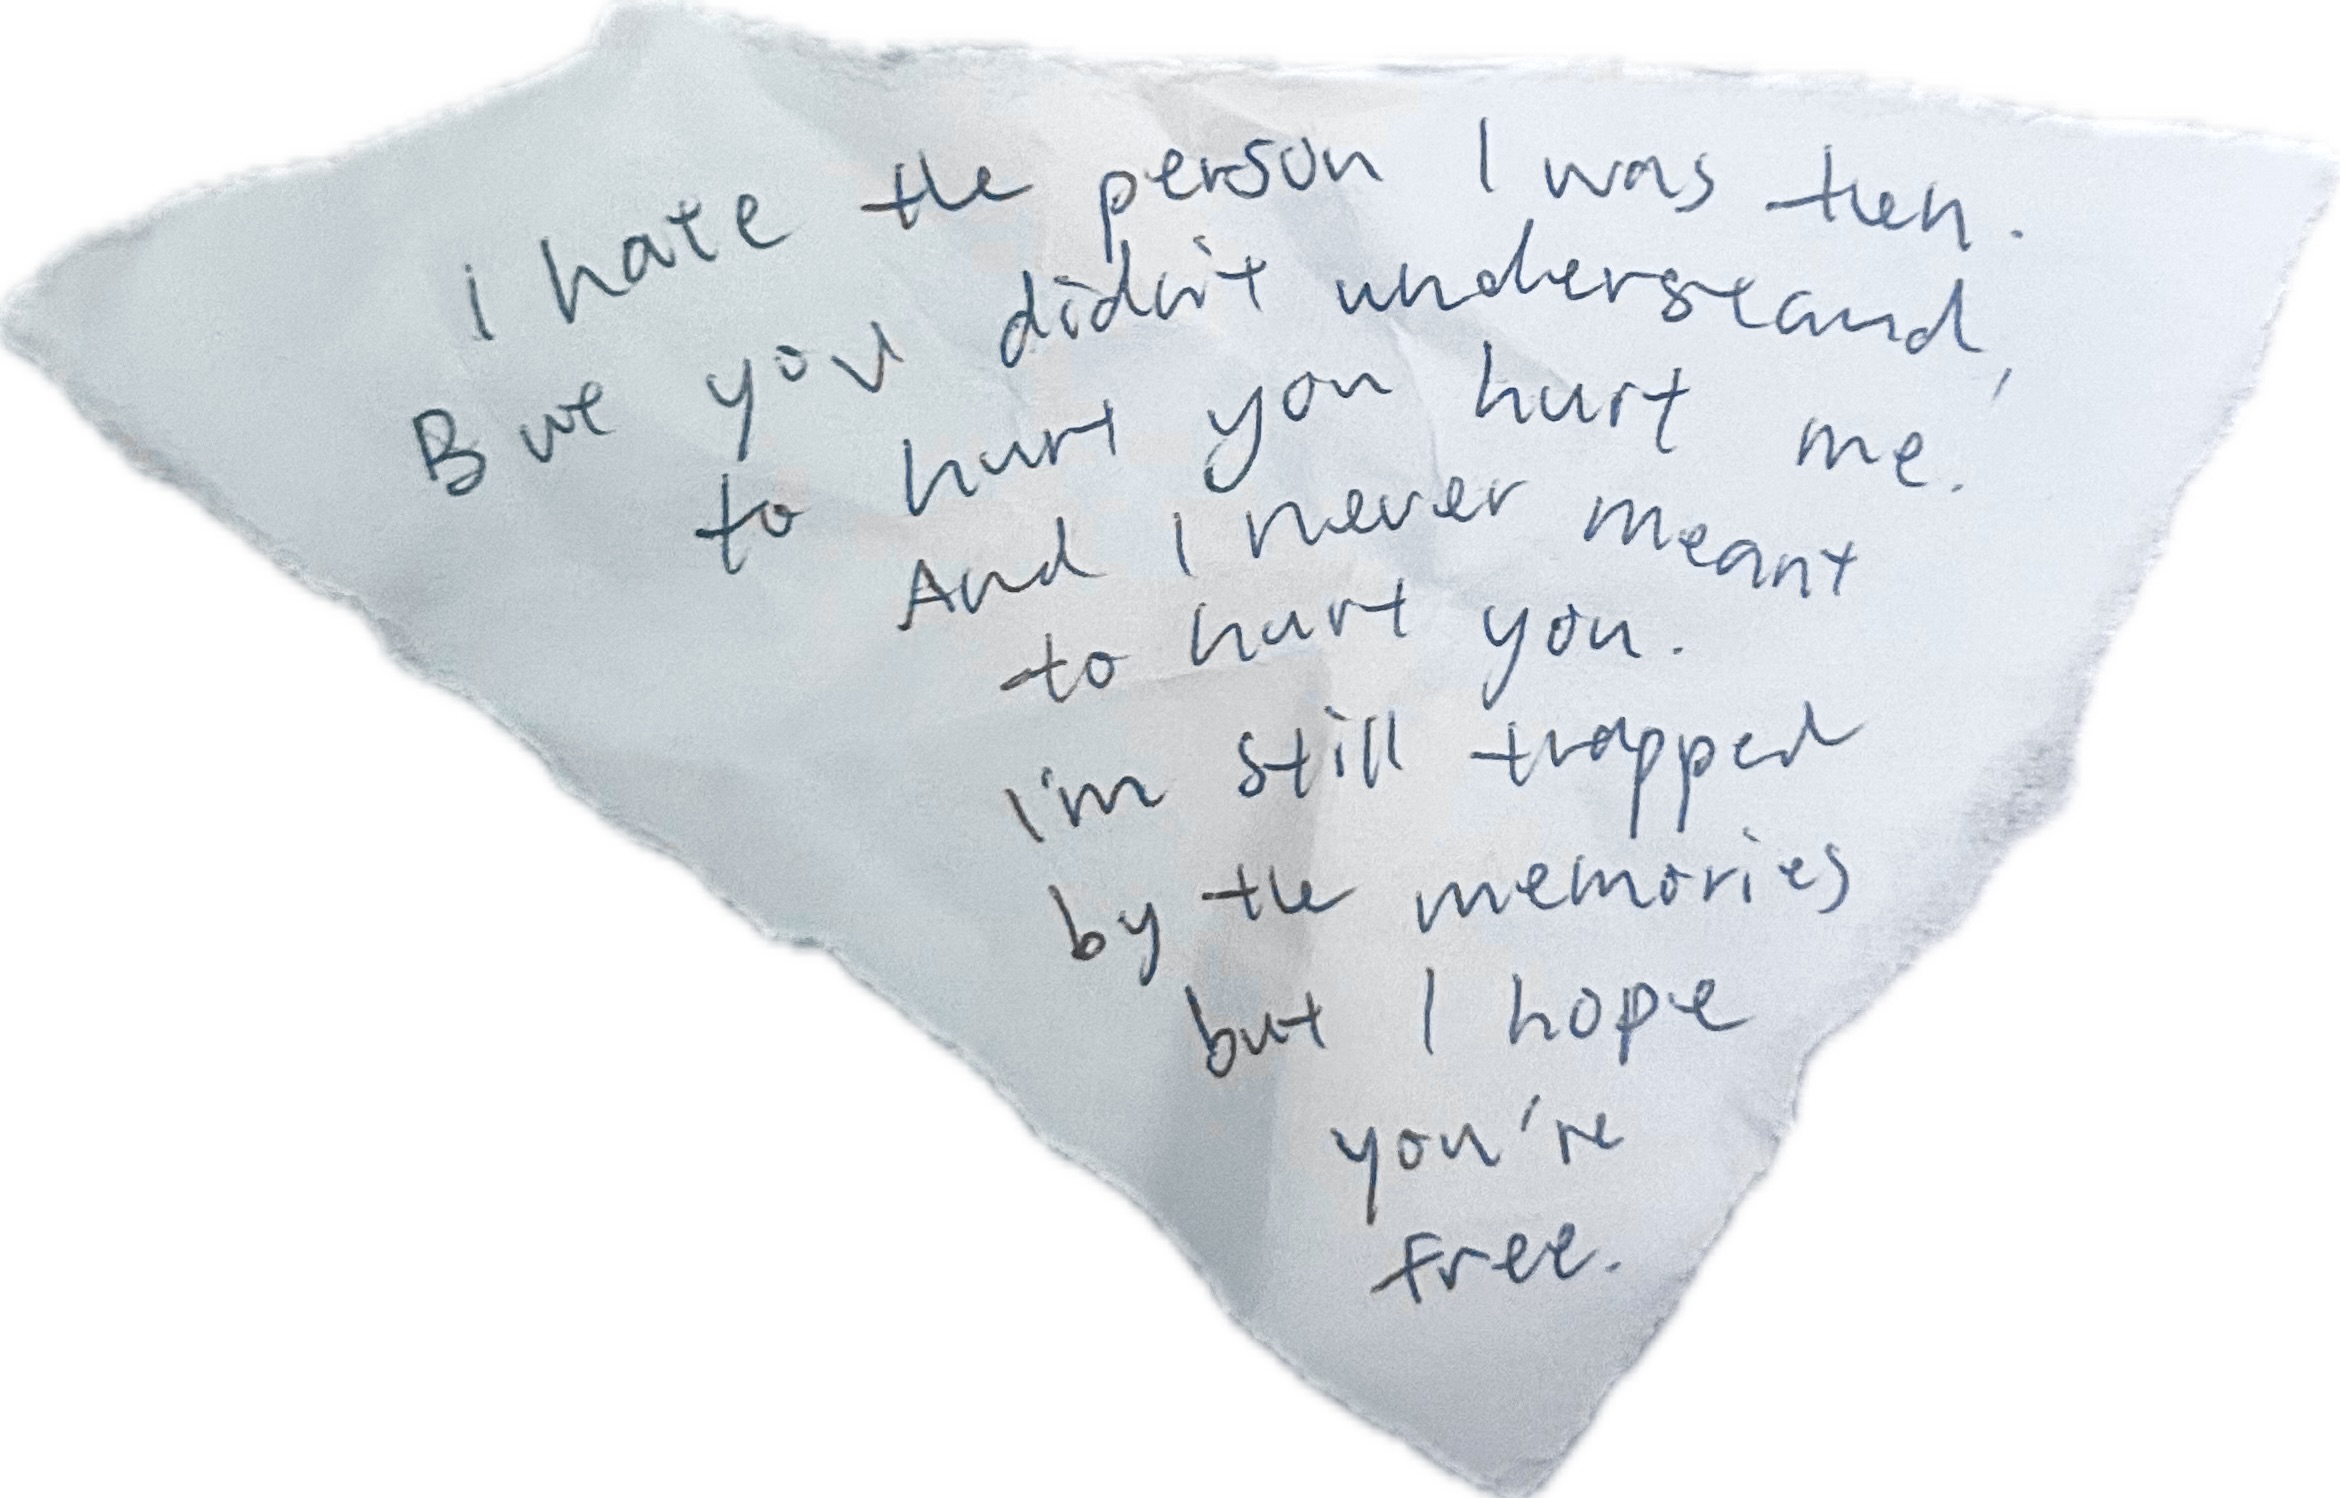 I hate the person I was then.
But you didn't understand,
to hurt you hurt me.
And I never meant
to hurt you.
I'm still trapped
by the memories
but I hope
you're
free.